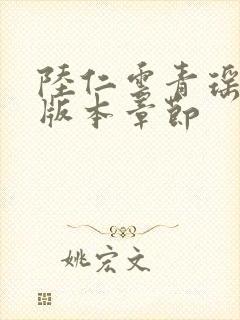 陸仁雲青瑶
版本章節
姚宏文